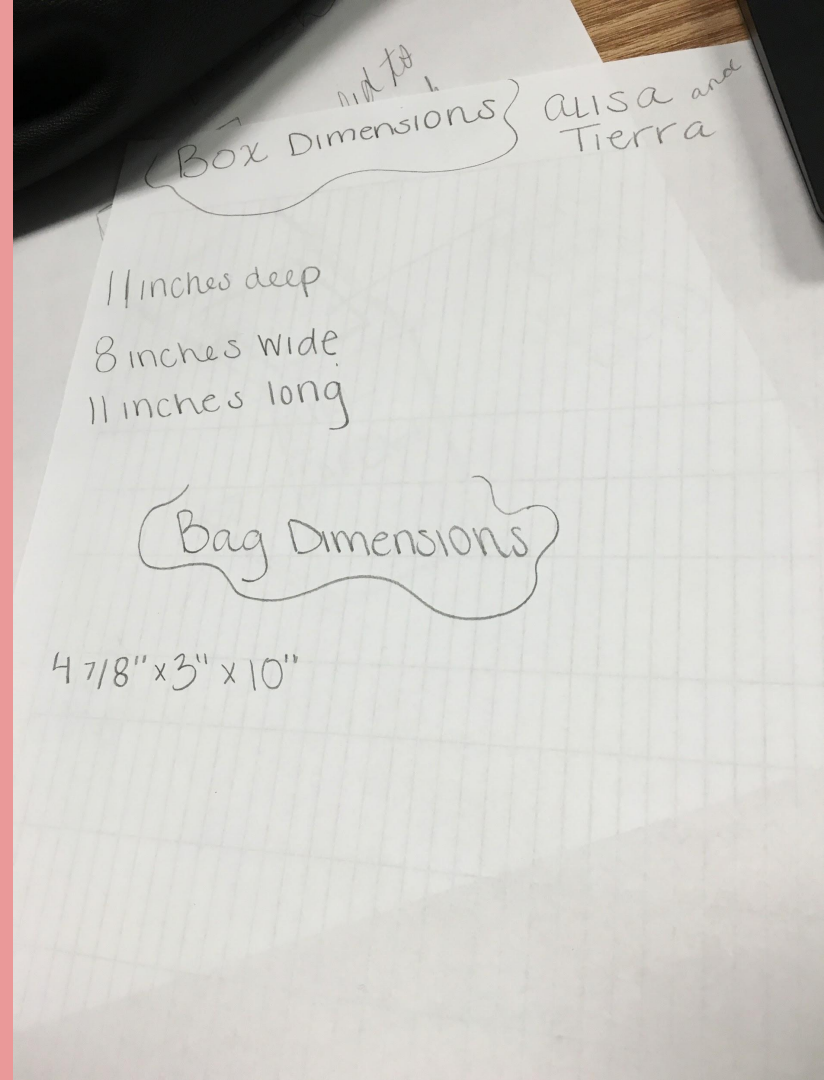 Box Dimensions
Alisa and
Tierra
11 inches deep
8 inches wide
11 inches long
Bag Dimensions
4 7/8" x 3" x 10"